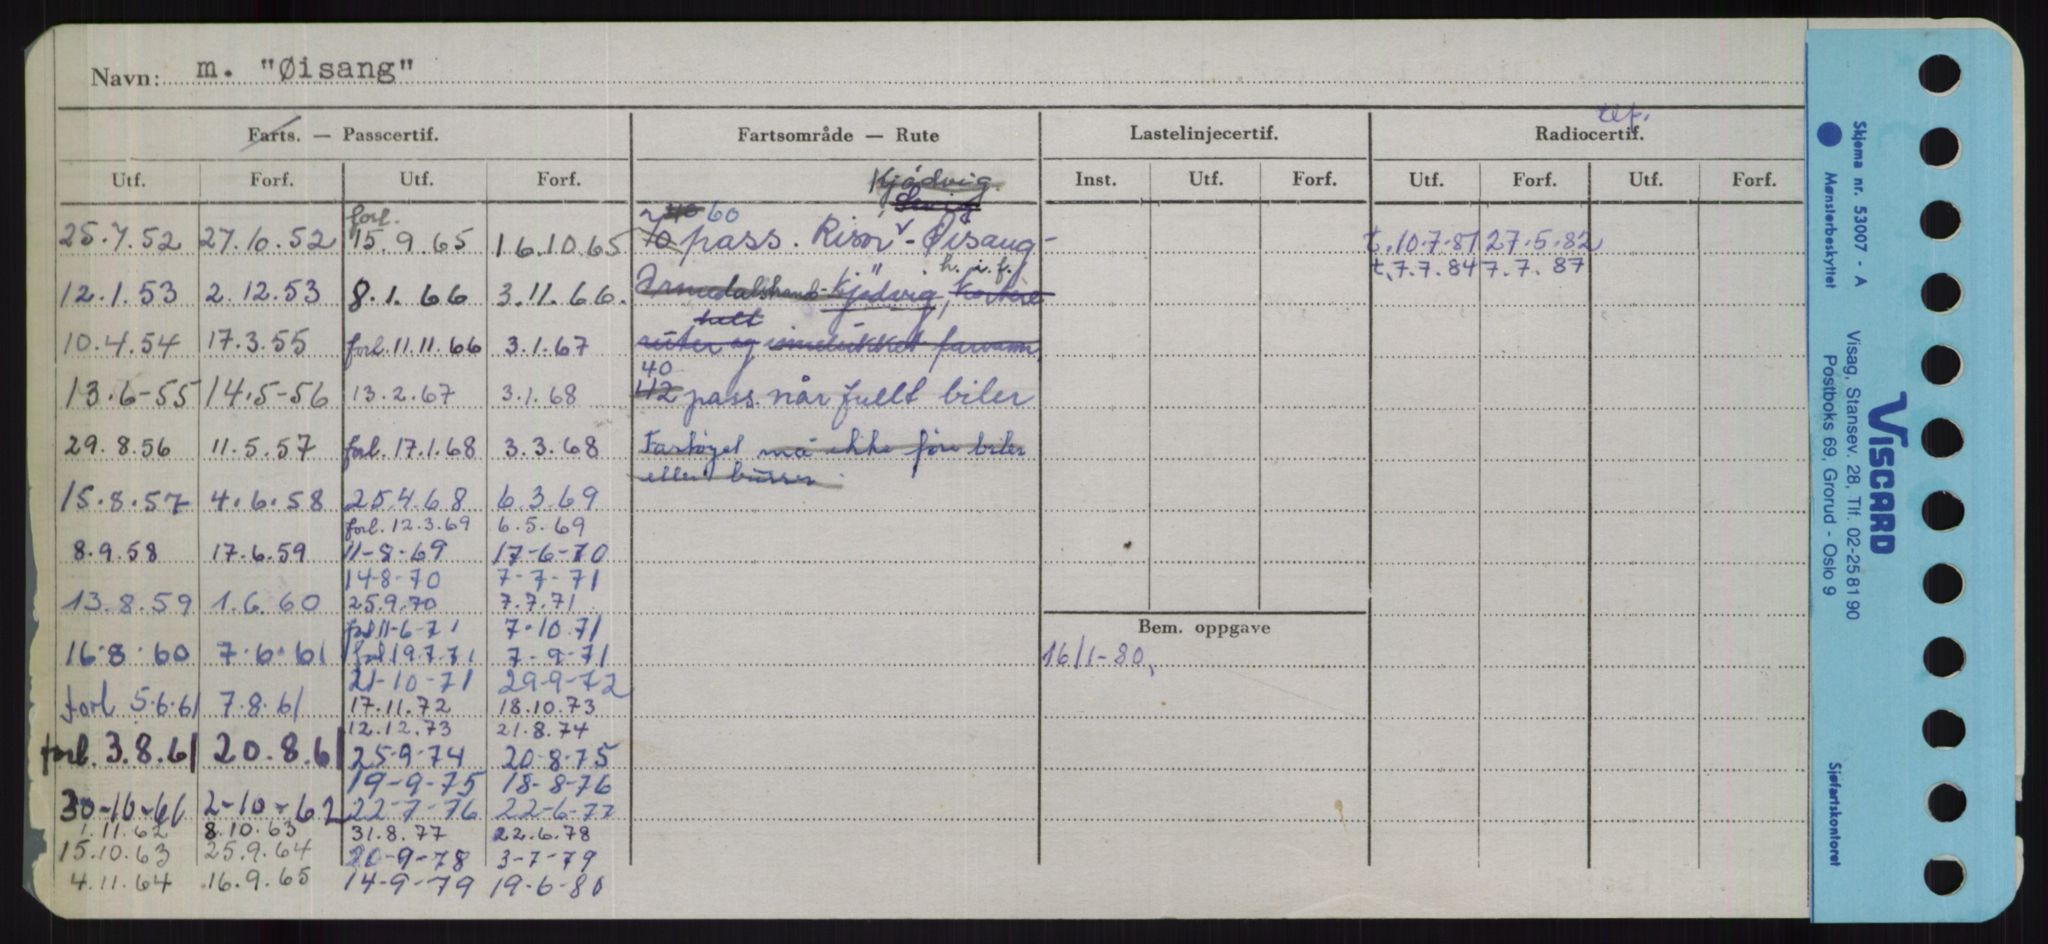 Navn: m. "Øisang"
Farts. — Passcertif.
Fartsområde — Rute
Lastelinjecertif.
telf.
Radiocertif.
Utf. Forf. Utf. Forf.
Inst. Utf. Forf.
Utf. Forf. Utf. Forf.
25.7.52 27.10.52
12.1.53 2.12.53
10.4.54 17.3.55
13.6-55 14.5-56
29.8.56 11.5.57
15.8.57 4.6.58
8.9.58 17.6.59
13.8.59 1.6.60
16.8.60 7.6.61
forl 5.6.61 7.8.61
forl. 3.8.61 20.8.61
30-10-61 2-10-62
1.11.62 8.10.63
15.10.63 25.9.64
4.11.64 16.9.65
forl.
15.9.65 16.10.65
8.1.66 3.11.66.
forl. 11.11.66 3.1.67
13.2.67 3.1.68
forl. 17.1.68 3.3.68
25.4.68 6.3.69
forl. 12.3.69 6.5.69
11-8-69 17-6-70
14-8-70 7-7-71
25.9.70 7.7.71
forl 11-6-71 7-10.71
forl 19.7.71 7-9-71
21-10-71 29-9-72
17.11.72 18.10.73
12.12.73 21.8.74
25-9-74 20-8-75
19-9-75 18-8-76
22-7-76 22-6-77
31.8.77 22.6.78
20-9-78 3-7-79
14-9-79 19-6-80
Kjødvig
40 60
70 pass. Risør - Øisang -
h. i. f.
Kjødvig, kortere
helt
ruter og innelukket farvann,
40
112 pass. når fullt biler
Fartøyet må ikke føre biler
eller busser.
t. 10.7.81 27.5.82
t. 7.7.84 7.7.87
Bem. oppgave
16/1-80,
Skjema nr. 53007 - A
Mønsterbeskyttet
VISCARD
Visag, Stansev. 28, Tlf. 02-25 81 90
Postboks 69, Grorud - Oslo 9
Sjøfartskontoret